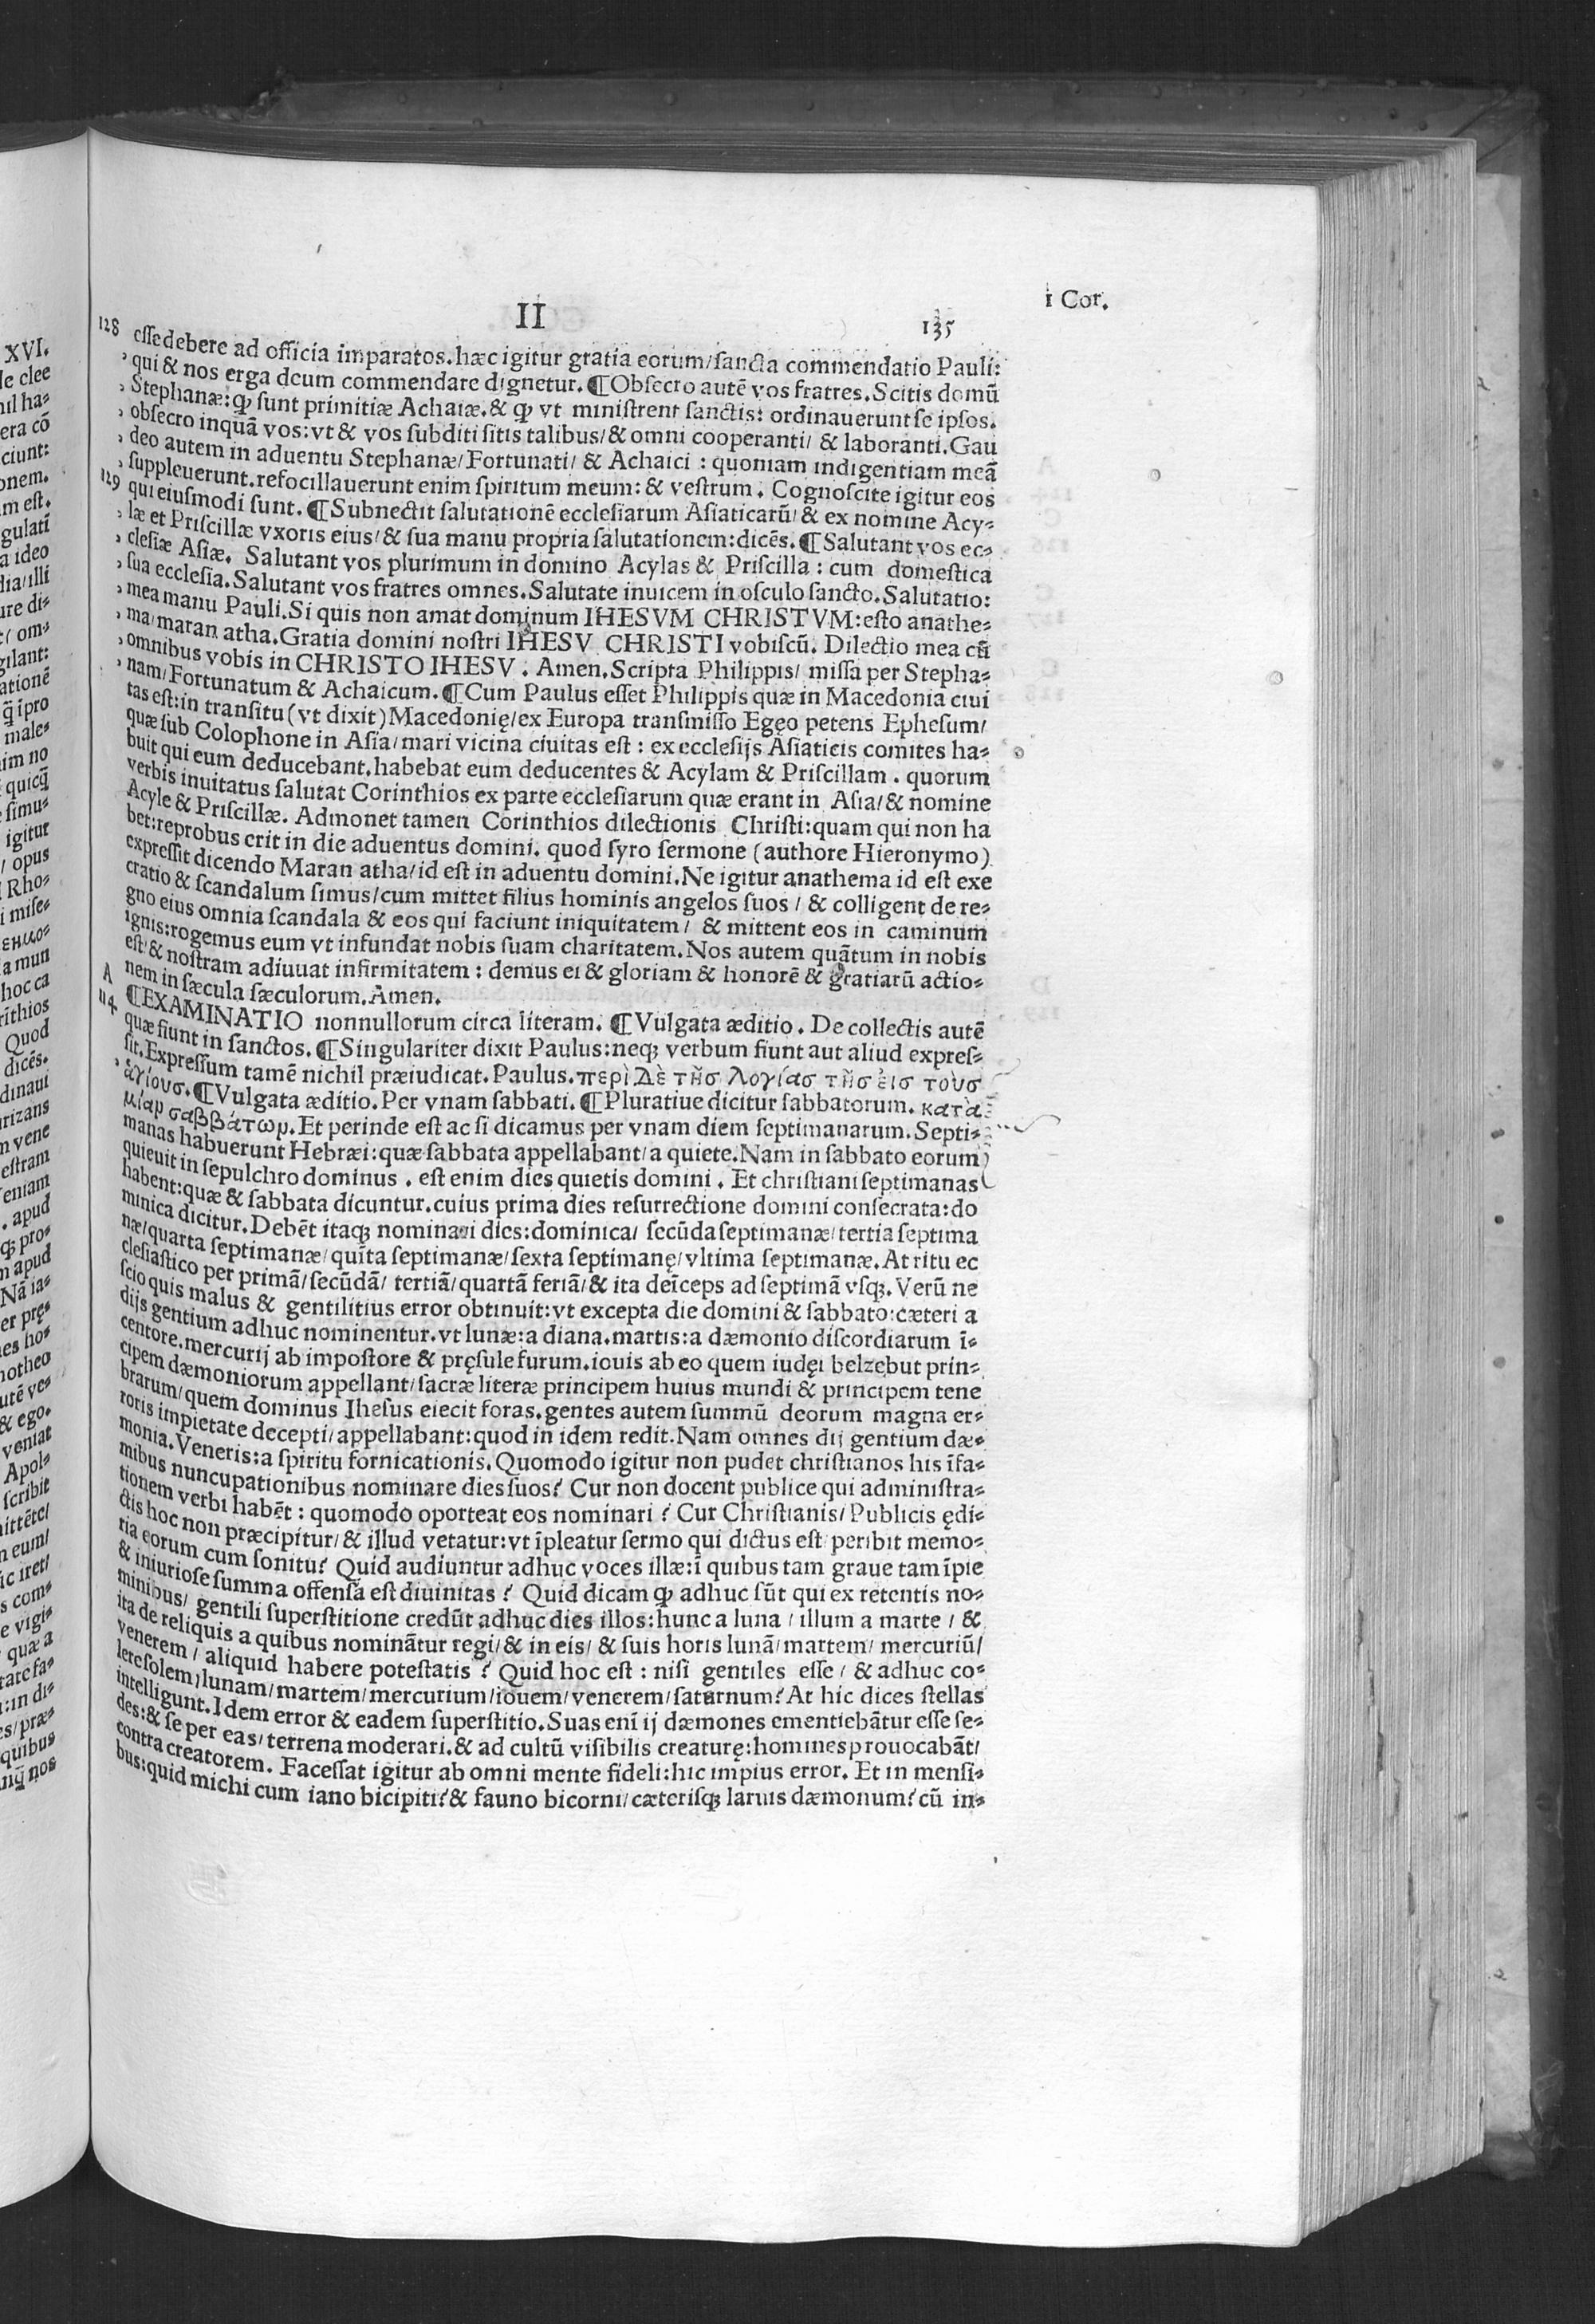 XVI.
II
135
1 Cor.
128 esse debere ad officia imparatos. hæc igitur gratia eorum/sancta commendatio Pauli:
qui & nos erga deum commendare dignetur. ¶Obsecro autē vos fratres. Scitis domū
Stephanæ: ꝙ sunt primitiæ Achaiæ. & ꝙ vt ministrent sanctis: ordinauerunt se ipsos.
obsecro inquā vos: vt & vos subditi sitis talibus/ & omni cooperanti/ & laboranti. Gau
deo autem in aduentu Stephanæ/ Fortunati/ & Achaici : quoniam indigentiam meā
suppleuerunt. refocillauerunt enim spiritum meum: & vestrum. Cognoscite igitur eos
129 qui eiusmodi sunt. ¶Subnectit salutationē ecclesiarum Asiaticarū/ & ex nomine Acy⸗
læ et Priscillæ vxoris eius/ & sua manu propria salutationem: dicēs. ¶Salutant vos ec⸗
clesiæ Asiæ. Salutant vos plurimum in domino Acylas & Priscilla : cum domestica
sua ecclesia. Salutant vos fratres omnes. Salutate inuicem in osculo sancto. Salutatio:
mea manu Pauli. Si quis non amat dominum IHESVM CHRISTVM: esto anathe⸗
ma/ maran atha. Gratia domini nostri IHESV CHRISTI vobiscū. Dilectio mea cū
omnibus vobis in CHRISTO IHESV . Amen. Scripta Philippis/ missa per Stepha⸗
nam/ Fortunatum & Achaicum. ¶Cum Paulus esset Philippis quæ in Macedonia ciui
tas est: in transitu (vt dixit) Macedonię/ ex Europa transmisso Egęo petens Ephesum/
quæ sub Colophone in Asia/ mari vicina ciuitas est : ex ecclesijs Asiaticis comites ha⸗
buit qui eum deducebant. habebat eum deducentes & Acylam & Priscillam . quorum
verbis inuitatus salutat Corinthios ex parte ecclesiarum quæ erant in Asia/ & nomine
Acyle & Priscillæ. Admonet tamen Corinthios dilectionis Christi: quam qui non ha
bet: reprobus erit in die aduentus domini. quod syro sermone (authore Hieronymo)
expressit dicendo Maran atha/ id est in aduentu domini. Ne igitur anathema id est exe
cratio & scandalum simus/ cum mittet filius hominis angelos suos / & colligent de re⸗
gno eius omnia scandala & eos qui faciunt iniquitatem/ & mittent eos in caminum
ignis: rogemus eum vt infundat nobis suam charitatem. Nos autem quātum in nobis
est/ & nostram adiuuat infirmitatem : demus ei & gloriam & honorē & gratiarū actio⸗
A nem in sæcula sæculorum. Amen.
114 ¶EXAMINATIO nonnullorum circa literam. ¶Vulgata æditio. De collectis autē
quæ fiunt in sanctos. ¶Singulariter dixit Paulus: neqꝫ verbum fiunt aut aliud expres⸗
sit. Expressum tamē nichil præiudicat. Paulus. περὶ Δὲ τῆσ λογίασ τῆσ εἰσ τοὺσ
ἁγίουσ. ¶Vulgata æditio. Per vnam sabbati. ¶Pluratiue dicitur sabbatorum. κατὰ
μίαρ σαββάτωρ. Et perinde est ac si dicamus per vnam diem septimanarum. Septi⸗
manas habuerunt Hebræi: quæ sabbata appellabant/ a quiete. Nam in sabbato eorum
quieuit in sepulchro dominus . est enim dies quietis domini . Et christiani septimanas
habent: quæ & sabbata dicuntur. cuius prima dies resurrectione domini consecrata: do
minica dicitur. Debēt itaqꝫ nominari dies: dominica/ secūda septimanæ/ tertia septima
næ/ quarta septimanæ/ quīta septimanæ/ sexta septimanę/ vltima septimanæ. At ritu ec
clesiastico per primā/ secūdā/ tertiā/ quartā feriā/ & ita deīceps ad septimā vsqꝫ. Verū ne
scio quis malus & gentilitius error obtinuit: vt excepta die domini & sabbato: cæteri a
dijs gentium adhuc nominentur. vt lunæ: a diana. martis: a dæmonio discordiarum ī⸗
centore. mercurij ab impostore & pręsule furum. iouis ab eo quem iudęi belzebut prin⸗
cipem dæmoniorum appellant/ sacræ literæ principem huius mundi & principem tene
brarum/ quem dominus Ihesus eiecit foras. gentes autem summū deorum magna er⸗
roris impietate decepti/ appellabant: quod in idem redit. Nam omnes dij gentium dæ⸗
monia. Veneris: a spiritu fornicationis. Quomodo igitur non pudet christianos his īfa⸗
mibus nuncupationibus nominare dies suos? Cur non docent publice qui administra⸗
tionem verbi habēt : quomodo oporteat eos nominari ? Cur Christianis/ Publicis ędi⸗
ctis hoc non præcipitur/ & illud vetatur: vt īpleatur sermo qui dictus est/ peribit memo⸗
ria eorum cum sonitu? Quid audiuntur adhuc voces illæ: ī quibus tam graue tam īpie
& iniuriose summa offensa est diuinitas ? Quid dicam ꝙ adhuc sūt qui ex retentis no⸗
minibus/ gentili superstitione credūt adhuc dies illos: hunc a luna / illum a marte / &
ita de reliquis a quibus nominātur regi/ & in eis/ & suis horis lunā/ martem/ mercuriū/
venerem / aliquid habere potestatis ? Quid hoc est : nisi gentiles esse / & adhuc co⸗
lere solem/ lunam/ martem/ mercurium/ iouem/ venerem/ saturnum? At hic dices stellas
intelligunt. Idem error & eadem superstitio. Suas enī ij dæmones ementiebātur esse se⸗
des: & se per eas/ terrena moderari. & ad cultū visibilis creaturę: homines prouocabāt/
contra creatorem. Facessat igitur ab omni mente fideli: hic impius error. Et in mensi⸗
bus: quid michi cum iano bicipiti? & fauno bicorni/ cæterisqꝫ laruis dæmonum? cū in⸗